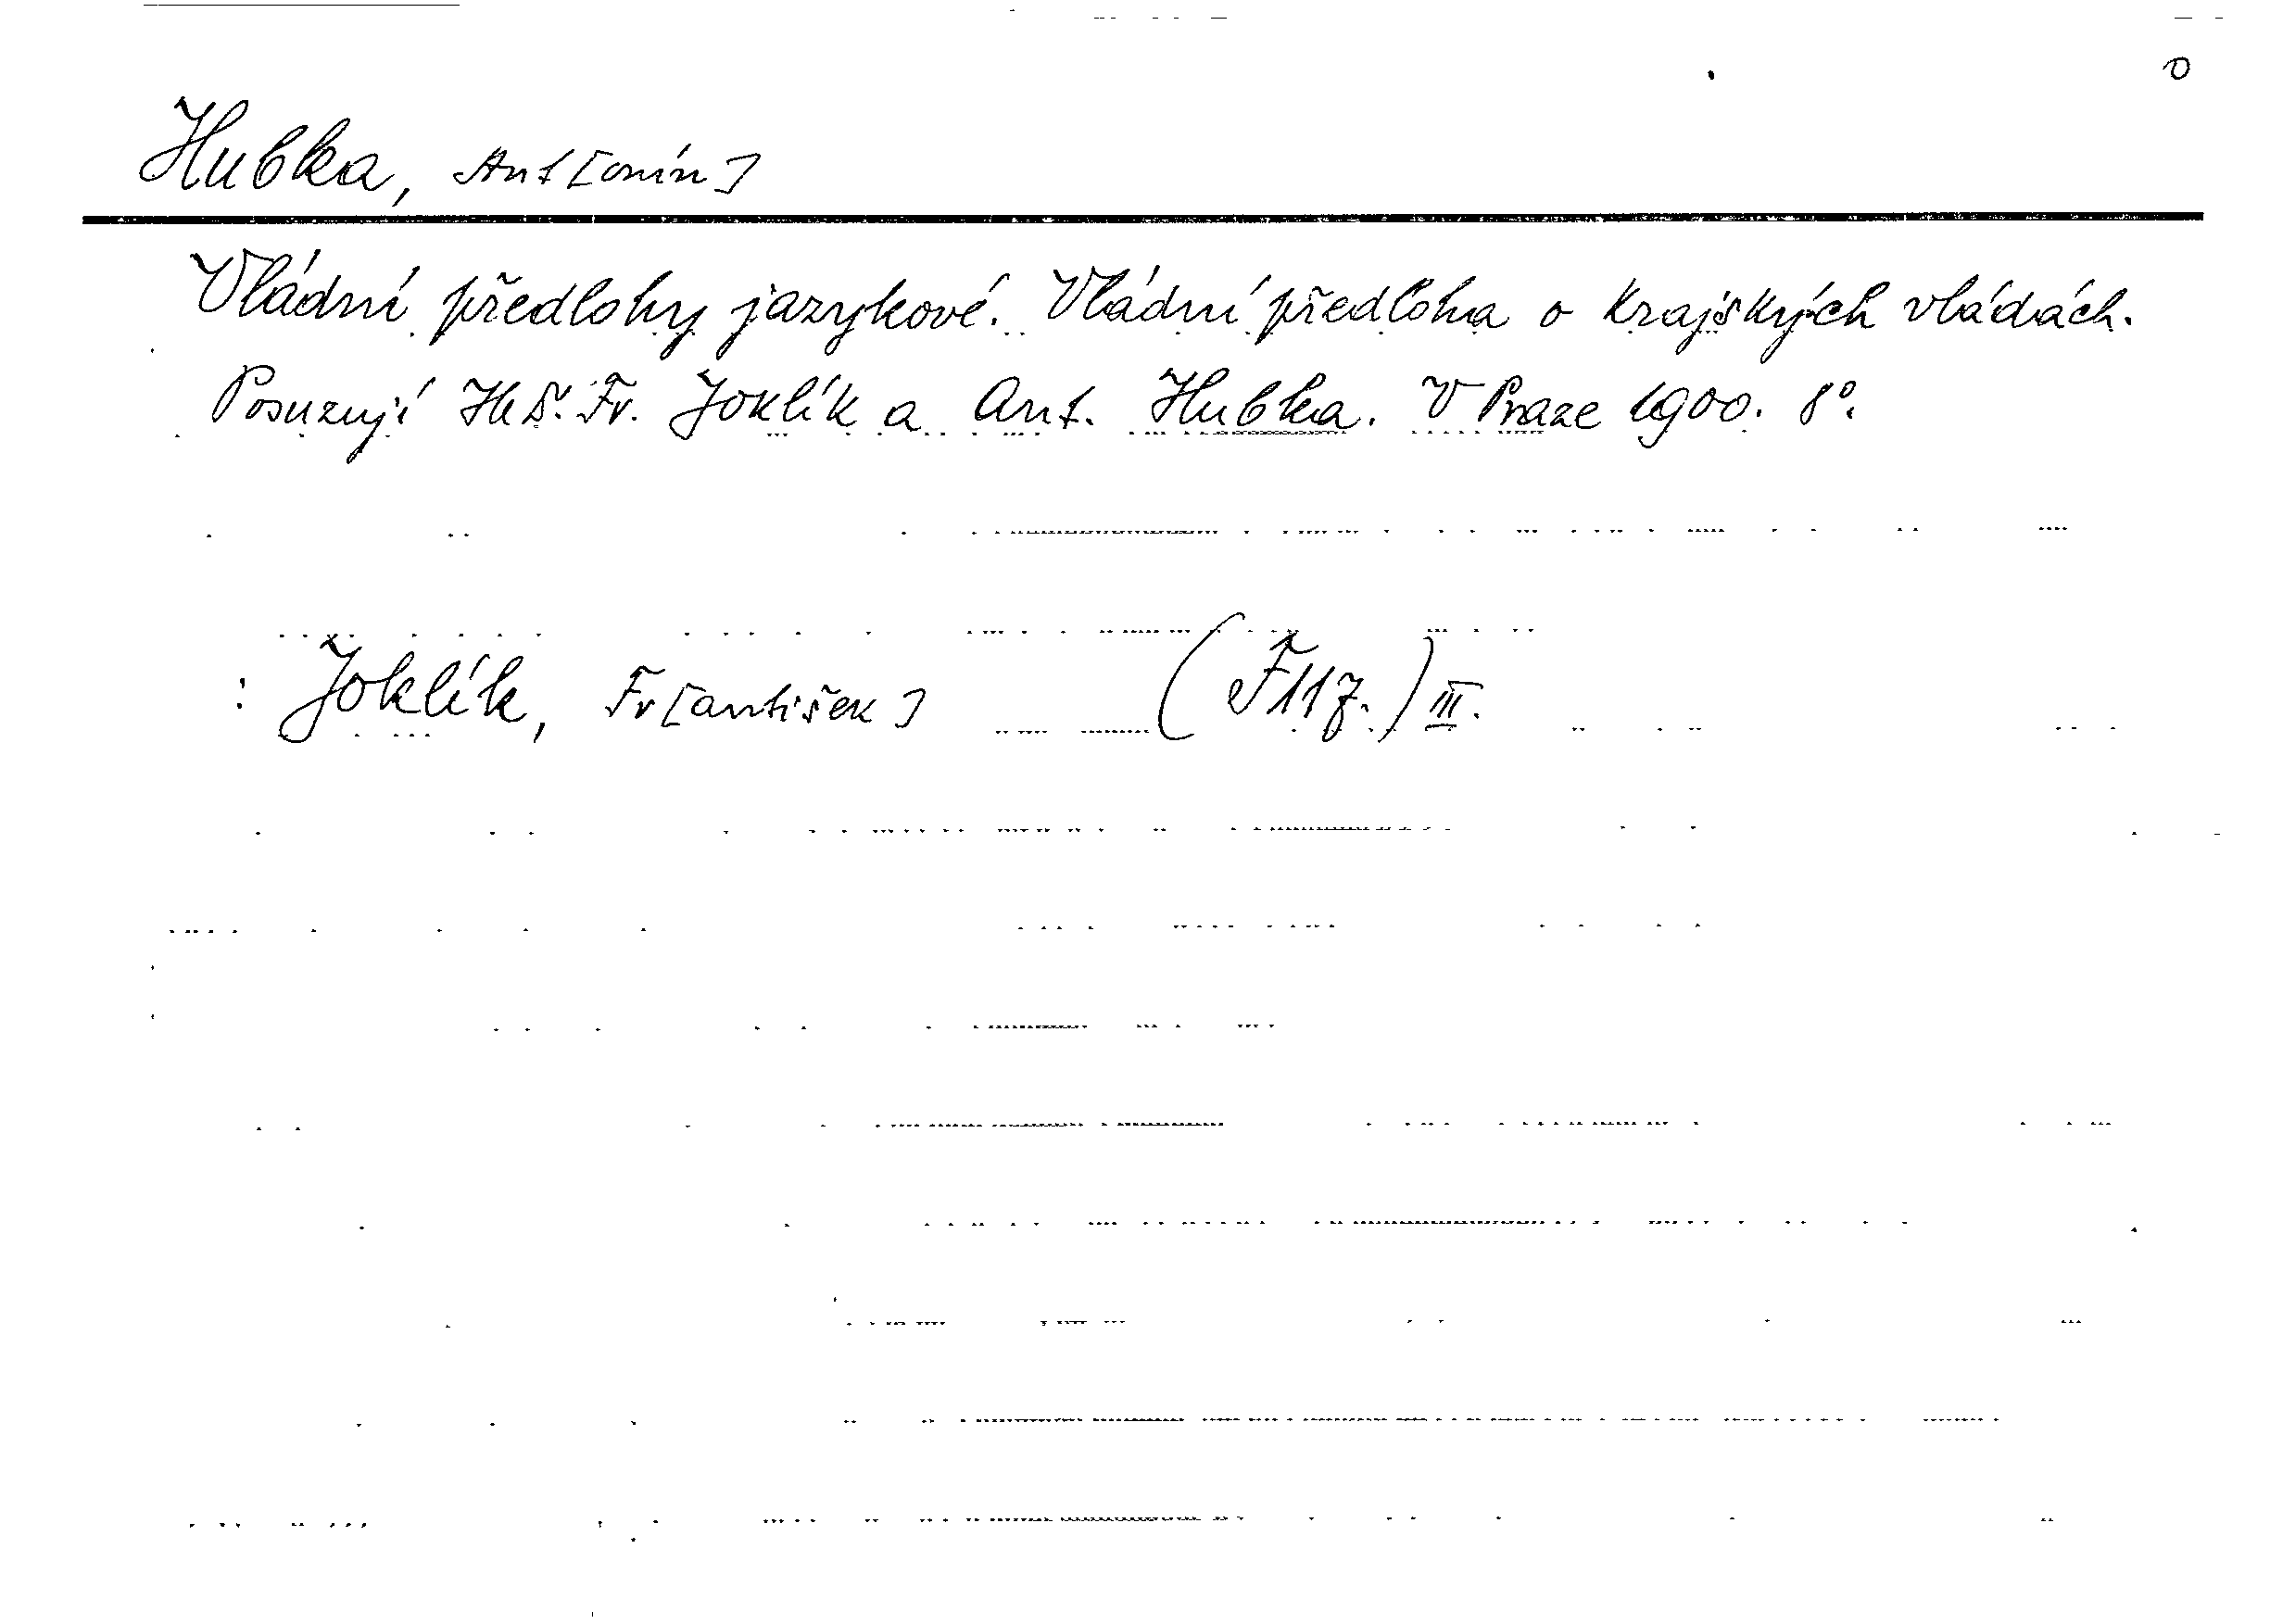 0
Hubka, Ant[onín]
Vládní předlohy jazykové. Vládní předloha o krajských vládách.
Posuzují Fr. Joklík a Ant. Hubka. V Praze 1900. 8°.
: Joklík, Fr[antišek] (F117.) III.